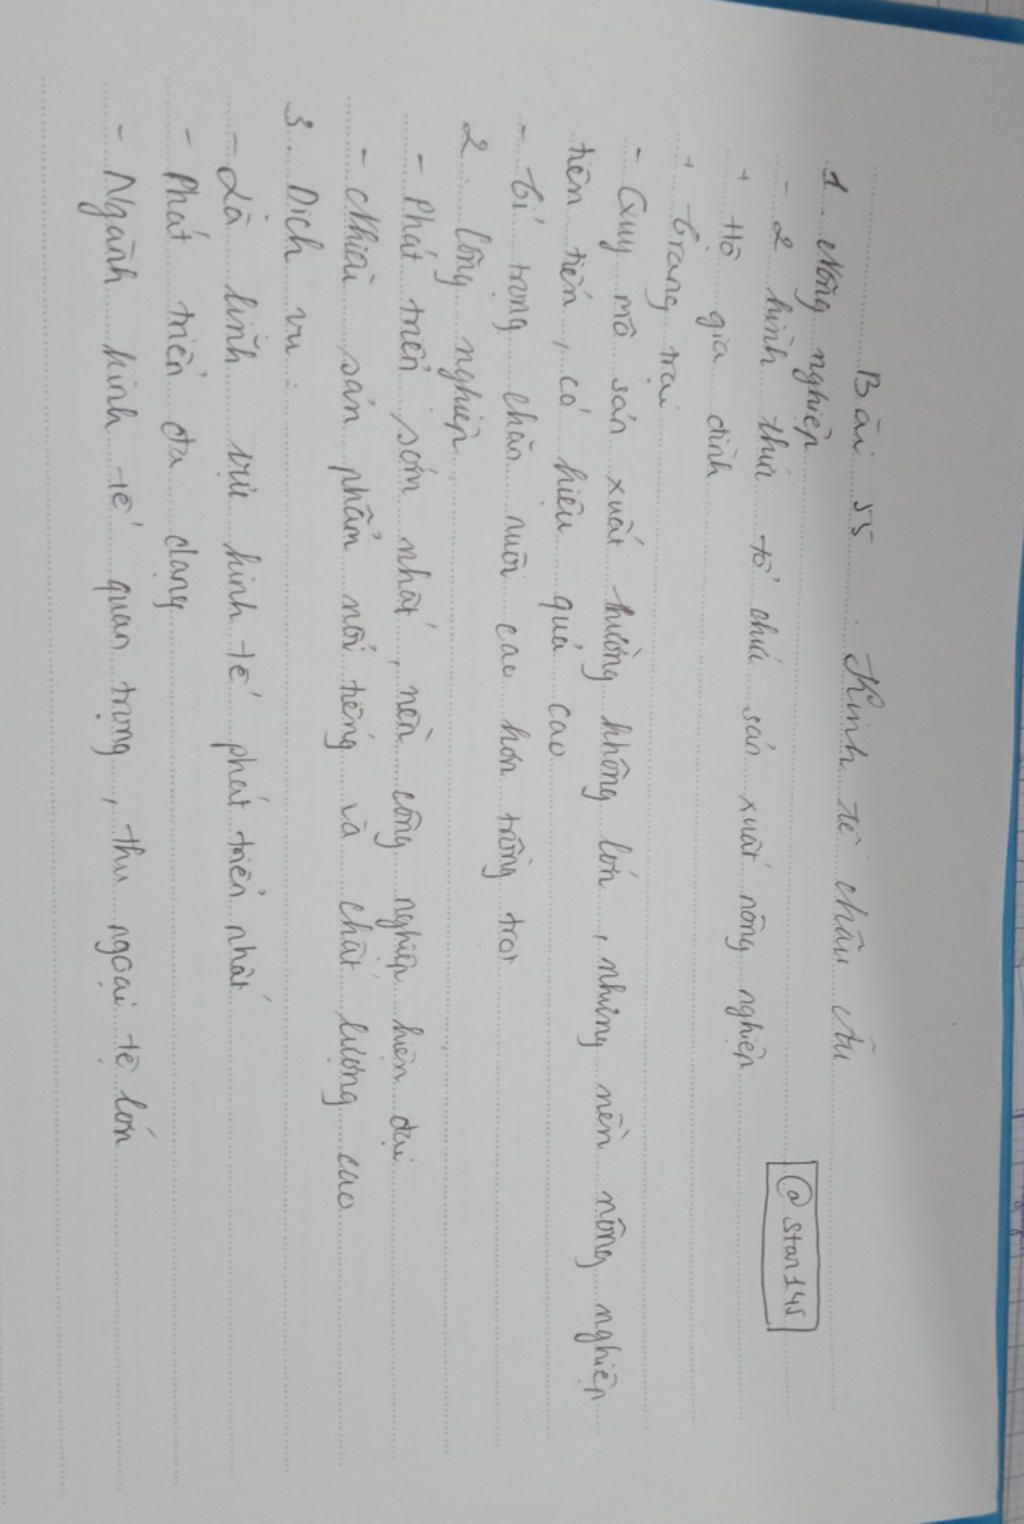 Bài 55. Kinh tế châu Âu
1. Nông nghiệp
- 2 hình thức tổ chức sản xuất nông nghiệp
@stan145
+ Hộ gia đình
+ Trang trại
- Quy mô sản xuất thường không lớn, nhưng nền nông nghiệp
tiên tiến, có hiệu quả cao
- Tỉ trọng chăn nuôi cao hơn trồng trọt
2. Công nghiệp
- Phát triển sớm nhất, nền công nghiệp hiện đại
- Nhiều sản phẩm nổi tiếng và chất lượng cao
3. Dịch vụ:
- Là lĩnh vực kinh tế phát triển nhất
- Phát triển đa dạng
- Ngành kinh tế quan trọng, thu ngoại tệ lớn